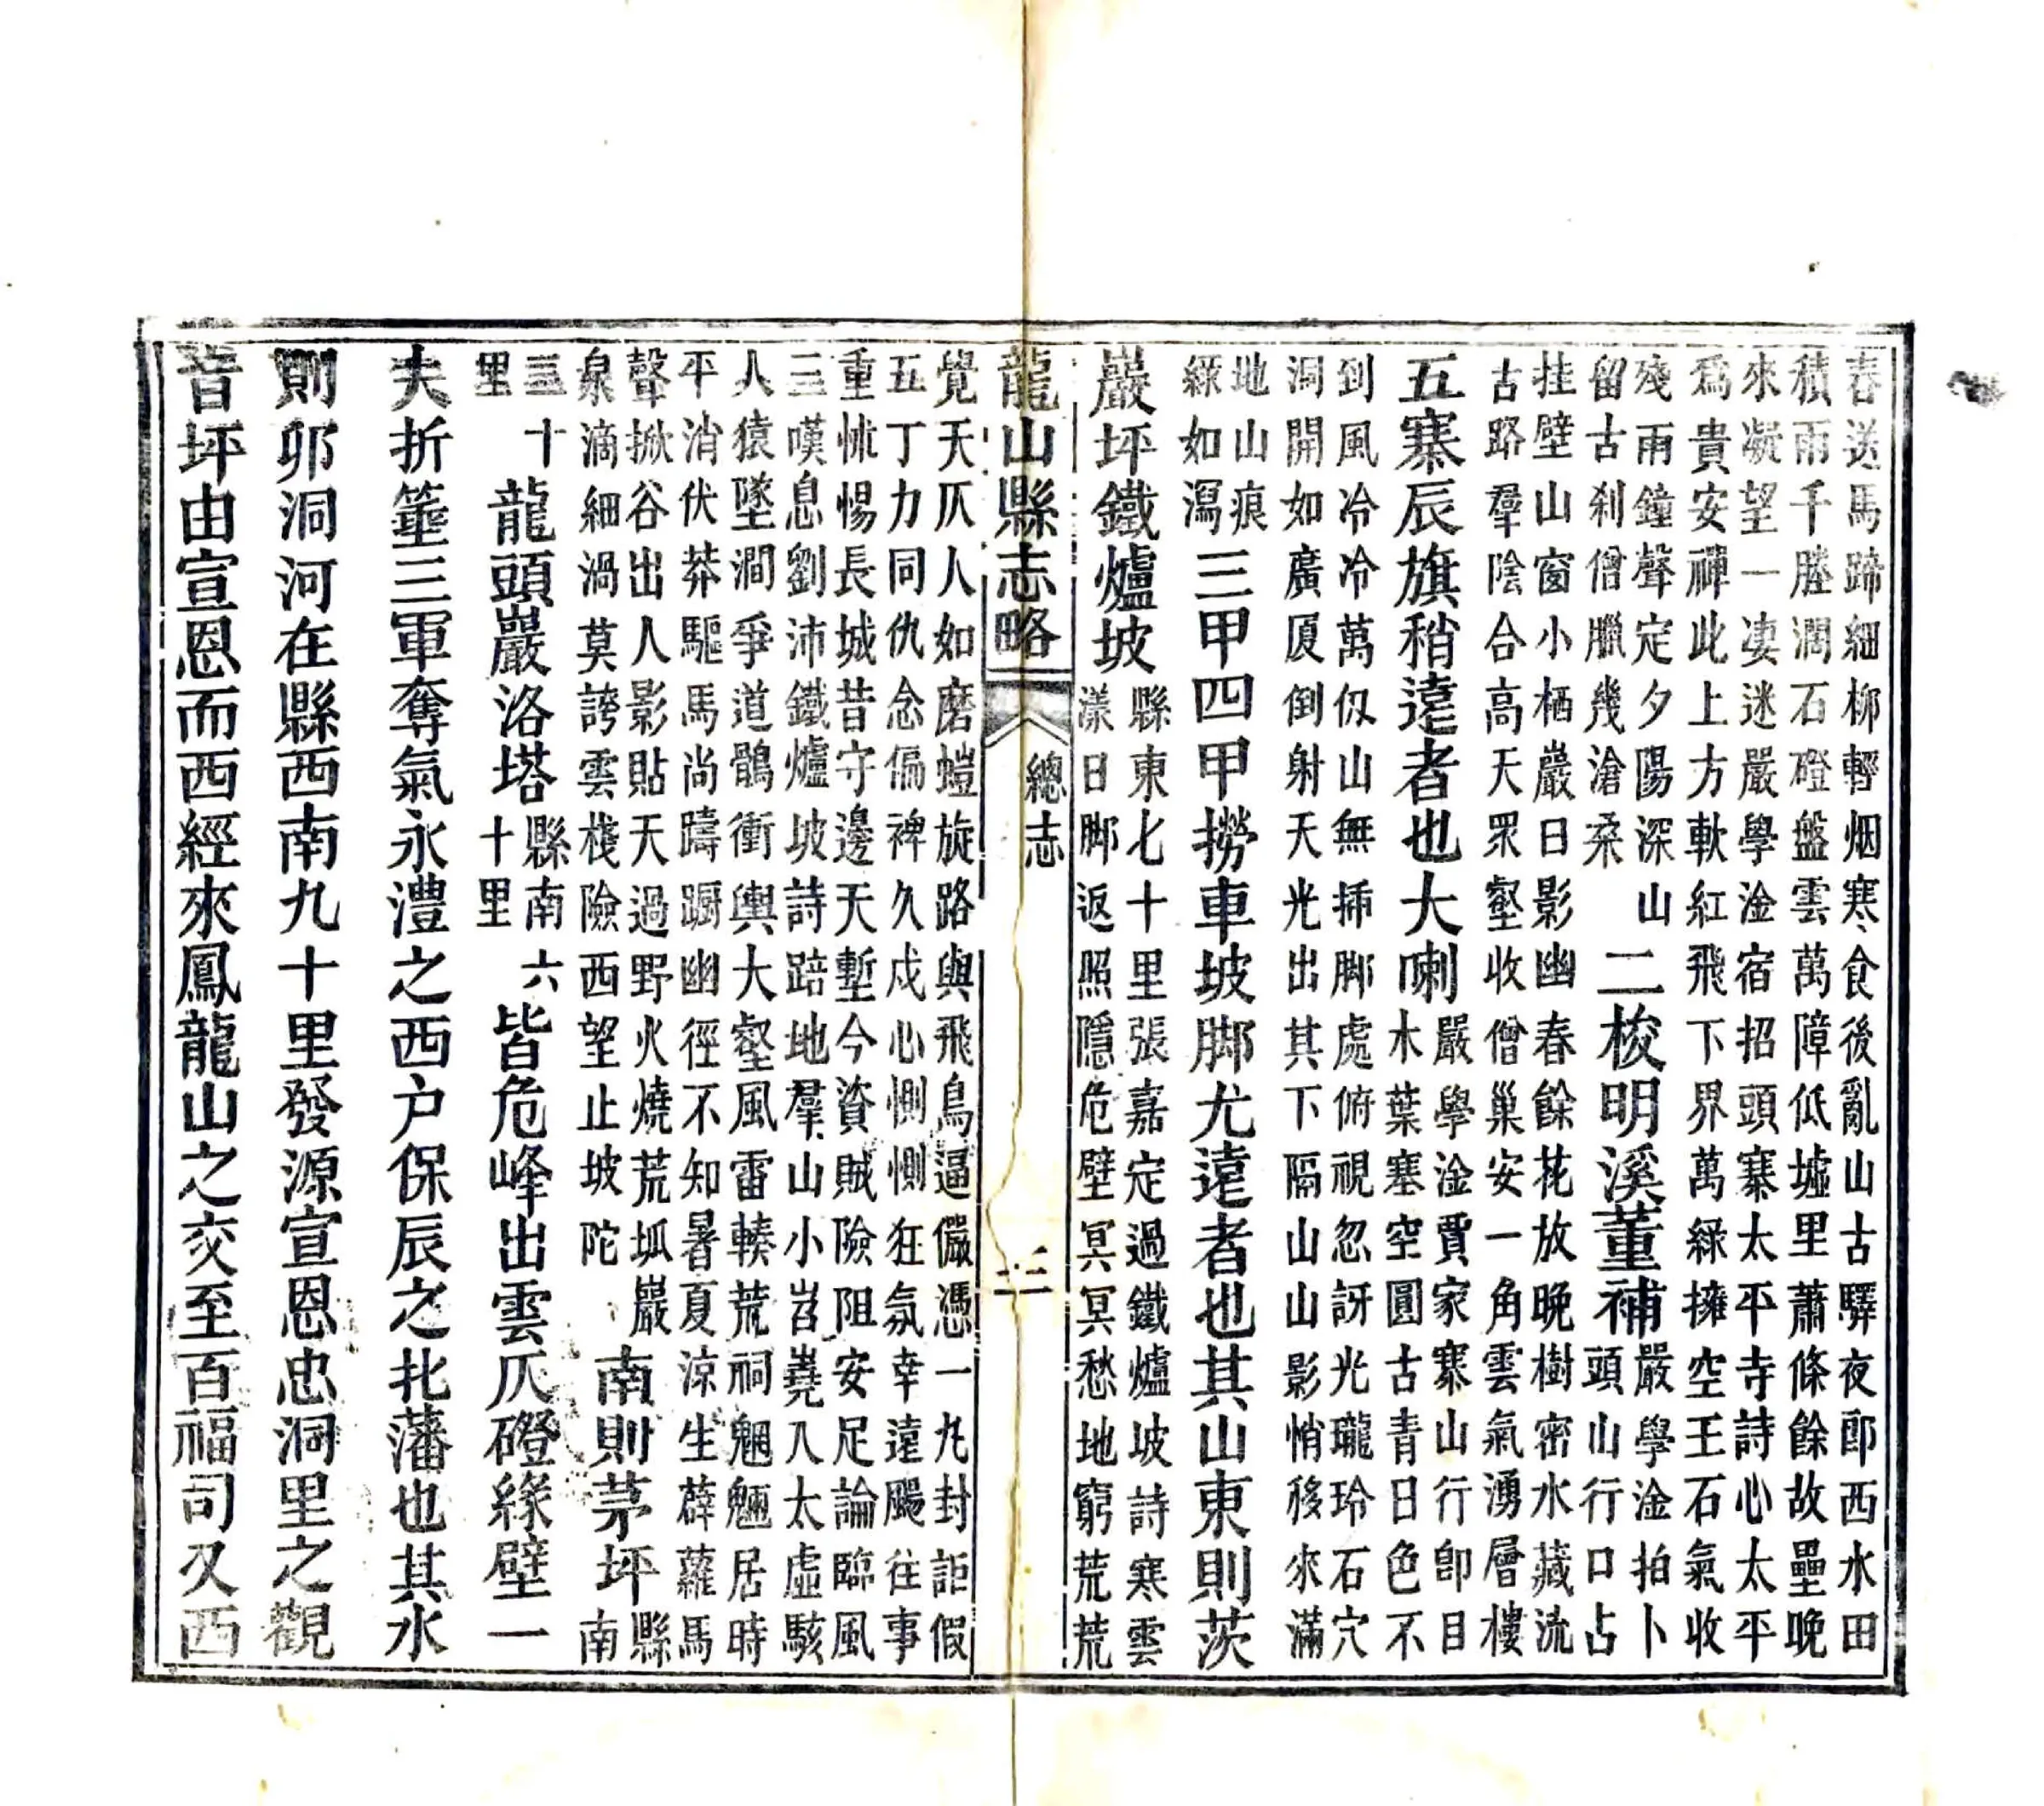 春送馬蹄細柳輕烟寒食後亂山古驛夜郎西水田
積雨千塍濶石磴盤雲萬障低墟里蕭條餘故壘晚
來凝望一凄迷嚴學淦宿招頭寨太平寺詩心太平
爲貴安禪此上方軟紅飛下界萬綠擁空王石氣收
殘雨鐘聲定夕陽深山
留古刹僧臘幾滄桑
二梭明溪董補
嚴學淦拍卜
頭山行口占
挂壁山窗小栖巖日影幽春餘花放晚樹密水藏流
古路羣陰合高天眾壑收僧巢安一角雲氣湧層樓
五寨辰旗稍遠者也大喇
嚴學淦賈家寨山行卽目
木葉塞空圓古青日色不
到風冷冷萬仭山無揷脚處俯視忽訝光瓏玲石穴
洞開如廣厦倒射天光出其下隔山山影悄移來滿
地山痕
綠如瀉
三甲四甲撈車坡脚尤遠者也其山東則茨
巖坪鐵爐坡
縣東七十里張嘉定過鐵爐坡詩寒雲
漾日脚返照隱危壁冥冥愁地窮荒荒
龍山縣志略
總志
三
覺天仄人如磨螘旋路與飛鳥逼儼憑一丸封詎假
五丁力同仇念偏裨久戍心惻惻狂氛幸遠颺往事
重怵惕長城昔守邊天塹今資賊險阻安足論臨風
三嘆息劉沛鐵爐坡詩踣地羣山小岧嶤入太虛駭
人猿墜澗爭道鶻衝輿大壑風雷輳荒祠魍魎居時
平消伏莽驅馬尚躊躕幽徑不知暑夏涼生薜蘿馬
聲掀谷出人影貼天過野火燒荒坬巖
泉滴細渦莫誇雲棧險西望止坡陀
南則茅坪
縣
南
三十
里
龍頭巖洛塔
縣南六
十里
皆危峰出雲仄磴緣壁一
夫折箠三軍奪氣永澧之西户保辰之北藩也其水
則卯洞河在縣西南九十里發源宣恩忠洞里之觀
音坪由宣恩而西經來鳳龍山之交至百福司又西